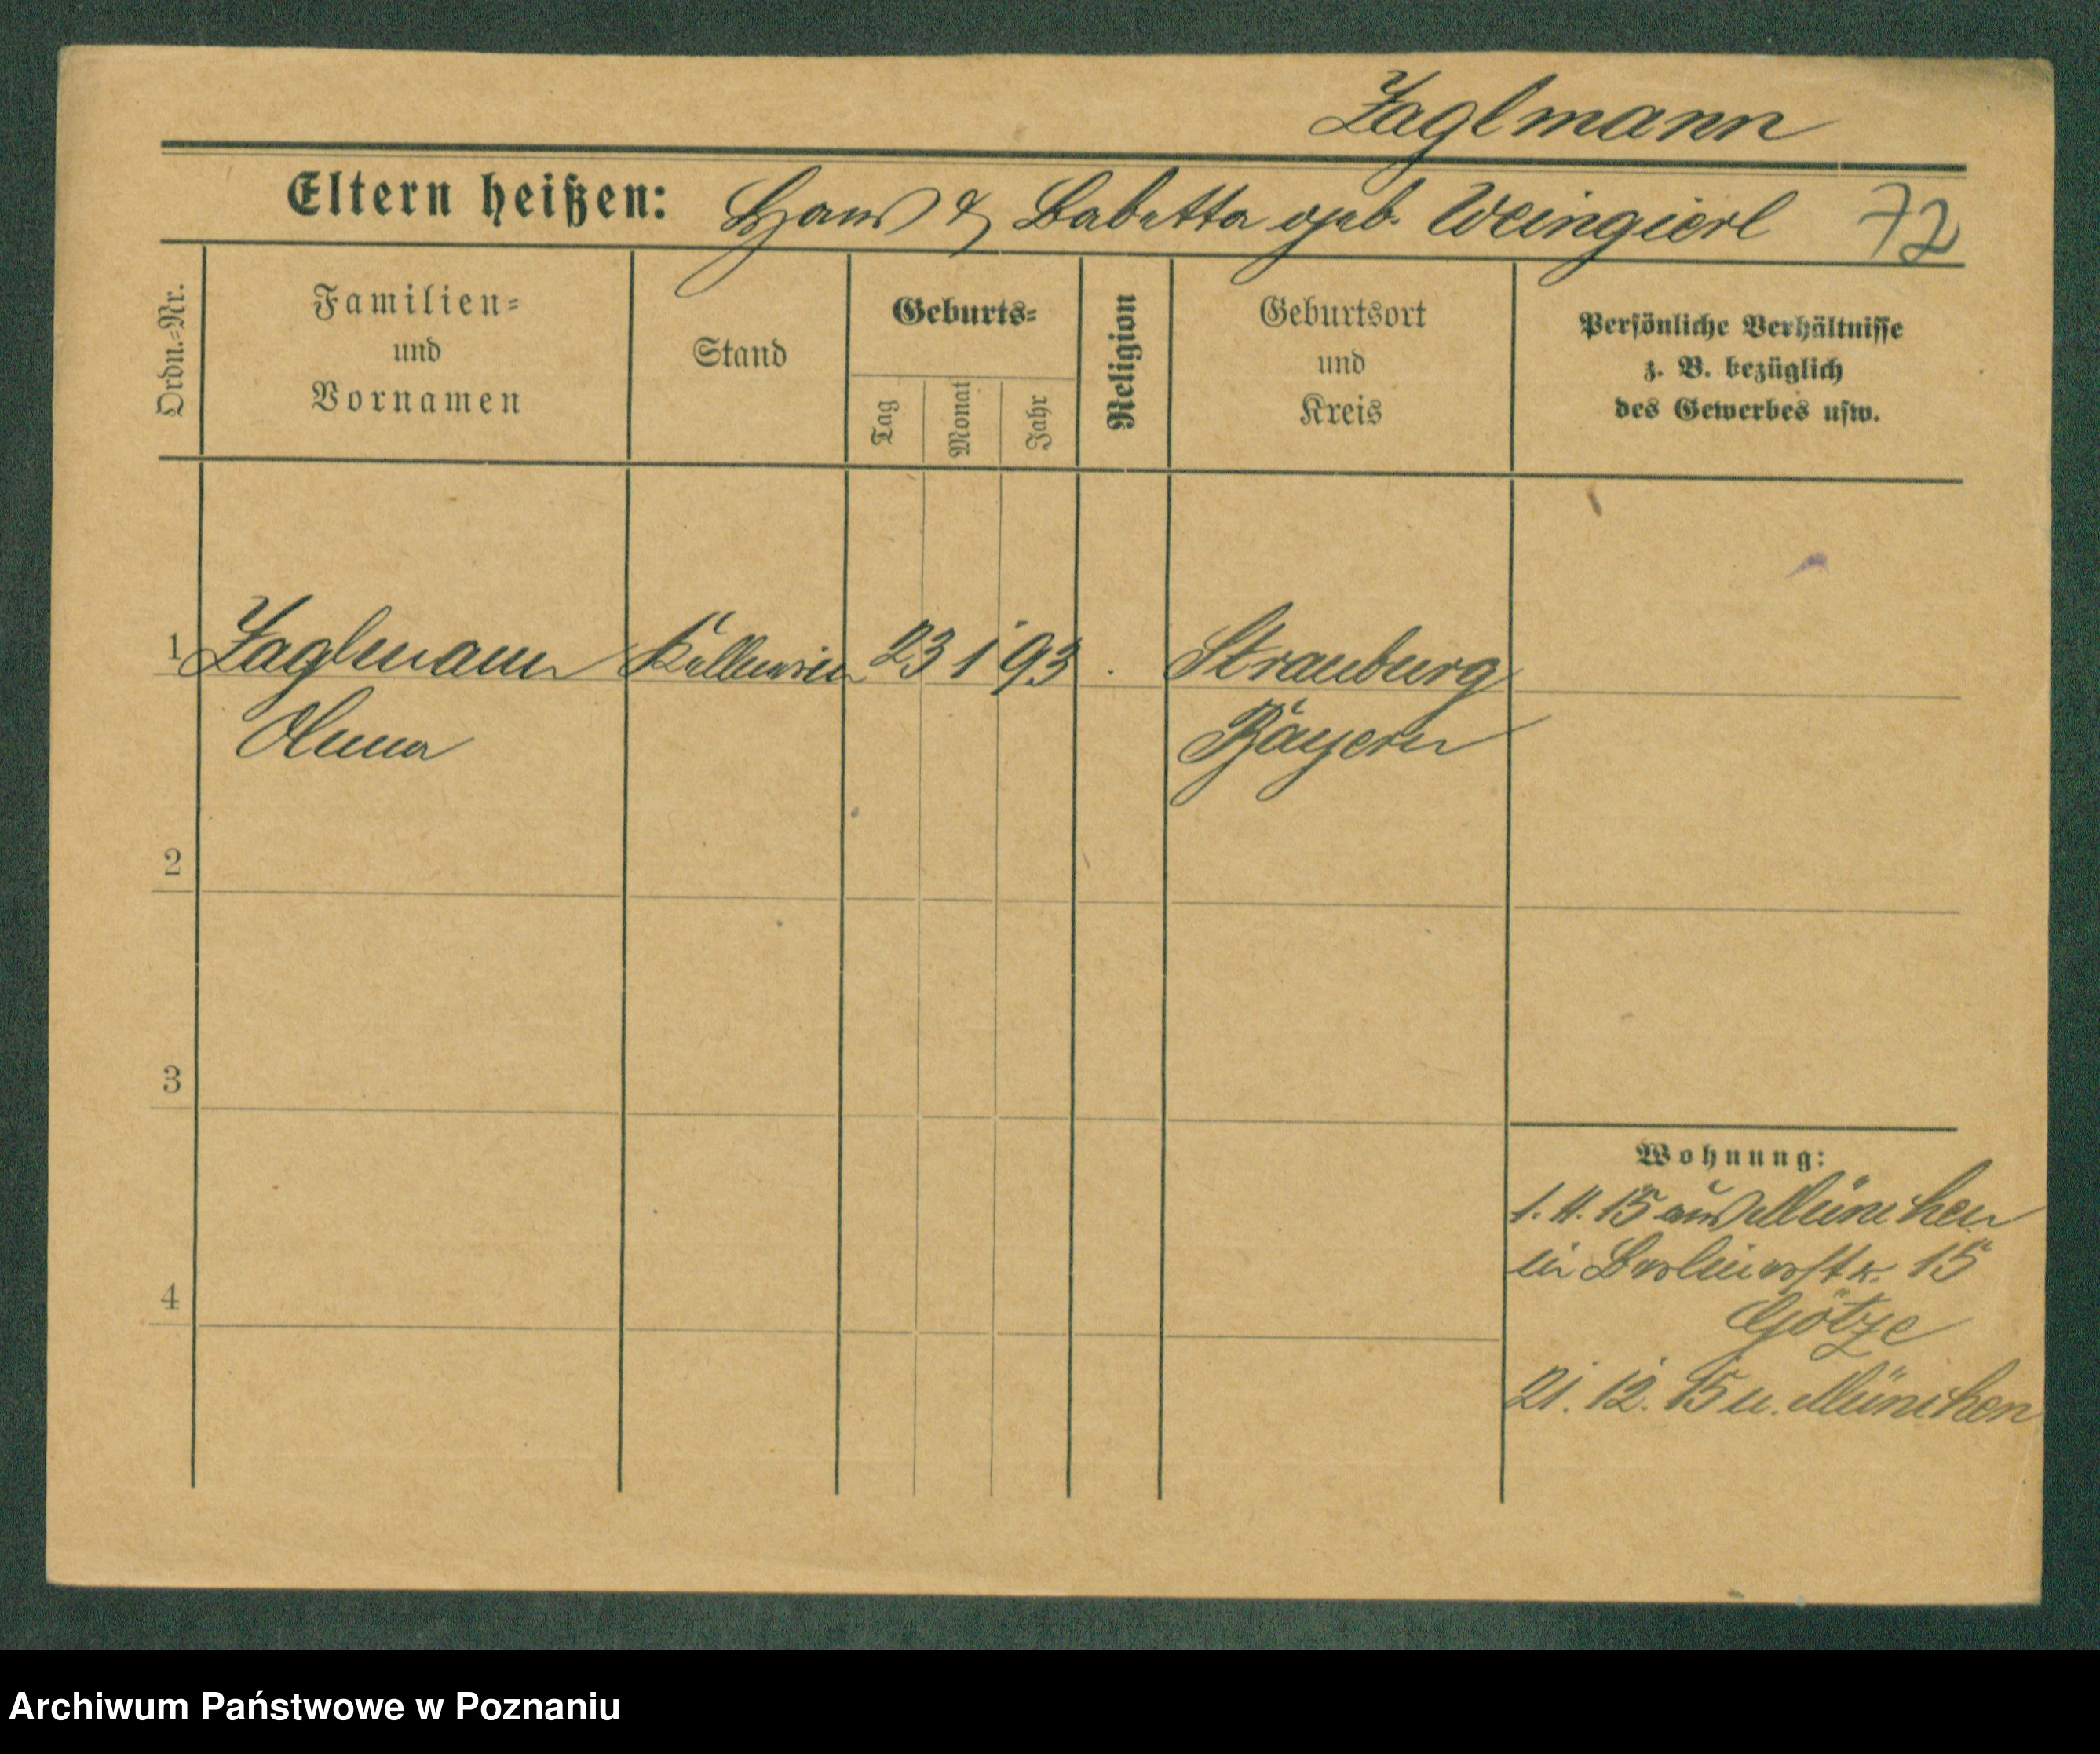 Zaglmann
Eltern heißen: Hans & Babetta geb. Weingierl 72
Ordn.=Nr.
Familien=
und
Vornamen
Stand
Geburts=
Tag
Monat
Jahr
Religion
Geburtsort
und
Kreis
Persönliche Verhältnisse
z. B. bezüglich
des Gewerbes usw.
1 Zaglmann Kellnerin 23 1 93 Strauburg
Anna Bayern
2
3
4
Wohnung:
1. 11. 15 aus München
in Berlinerstr. 15
Götze
21. 12. 15 n. München
Archiwum Państwowe w Poznaniu